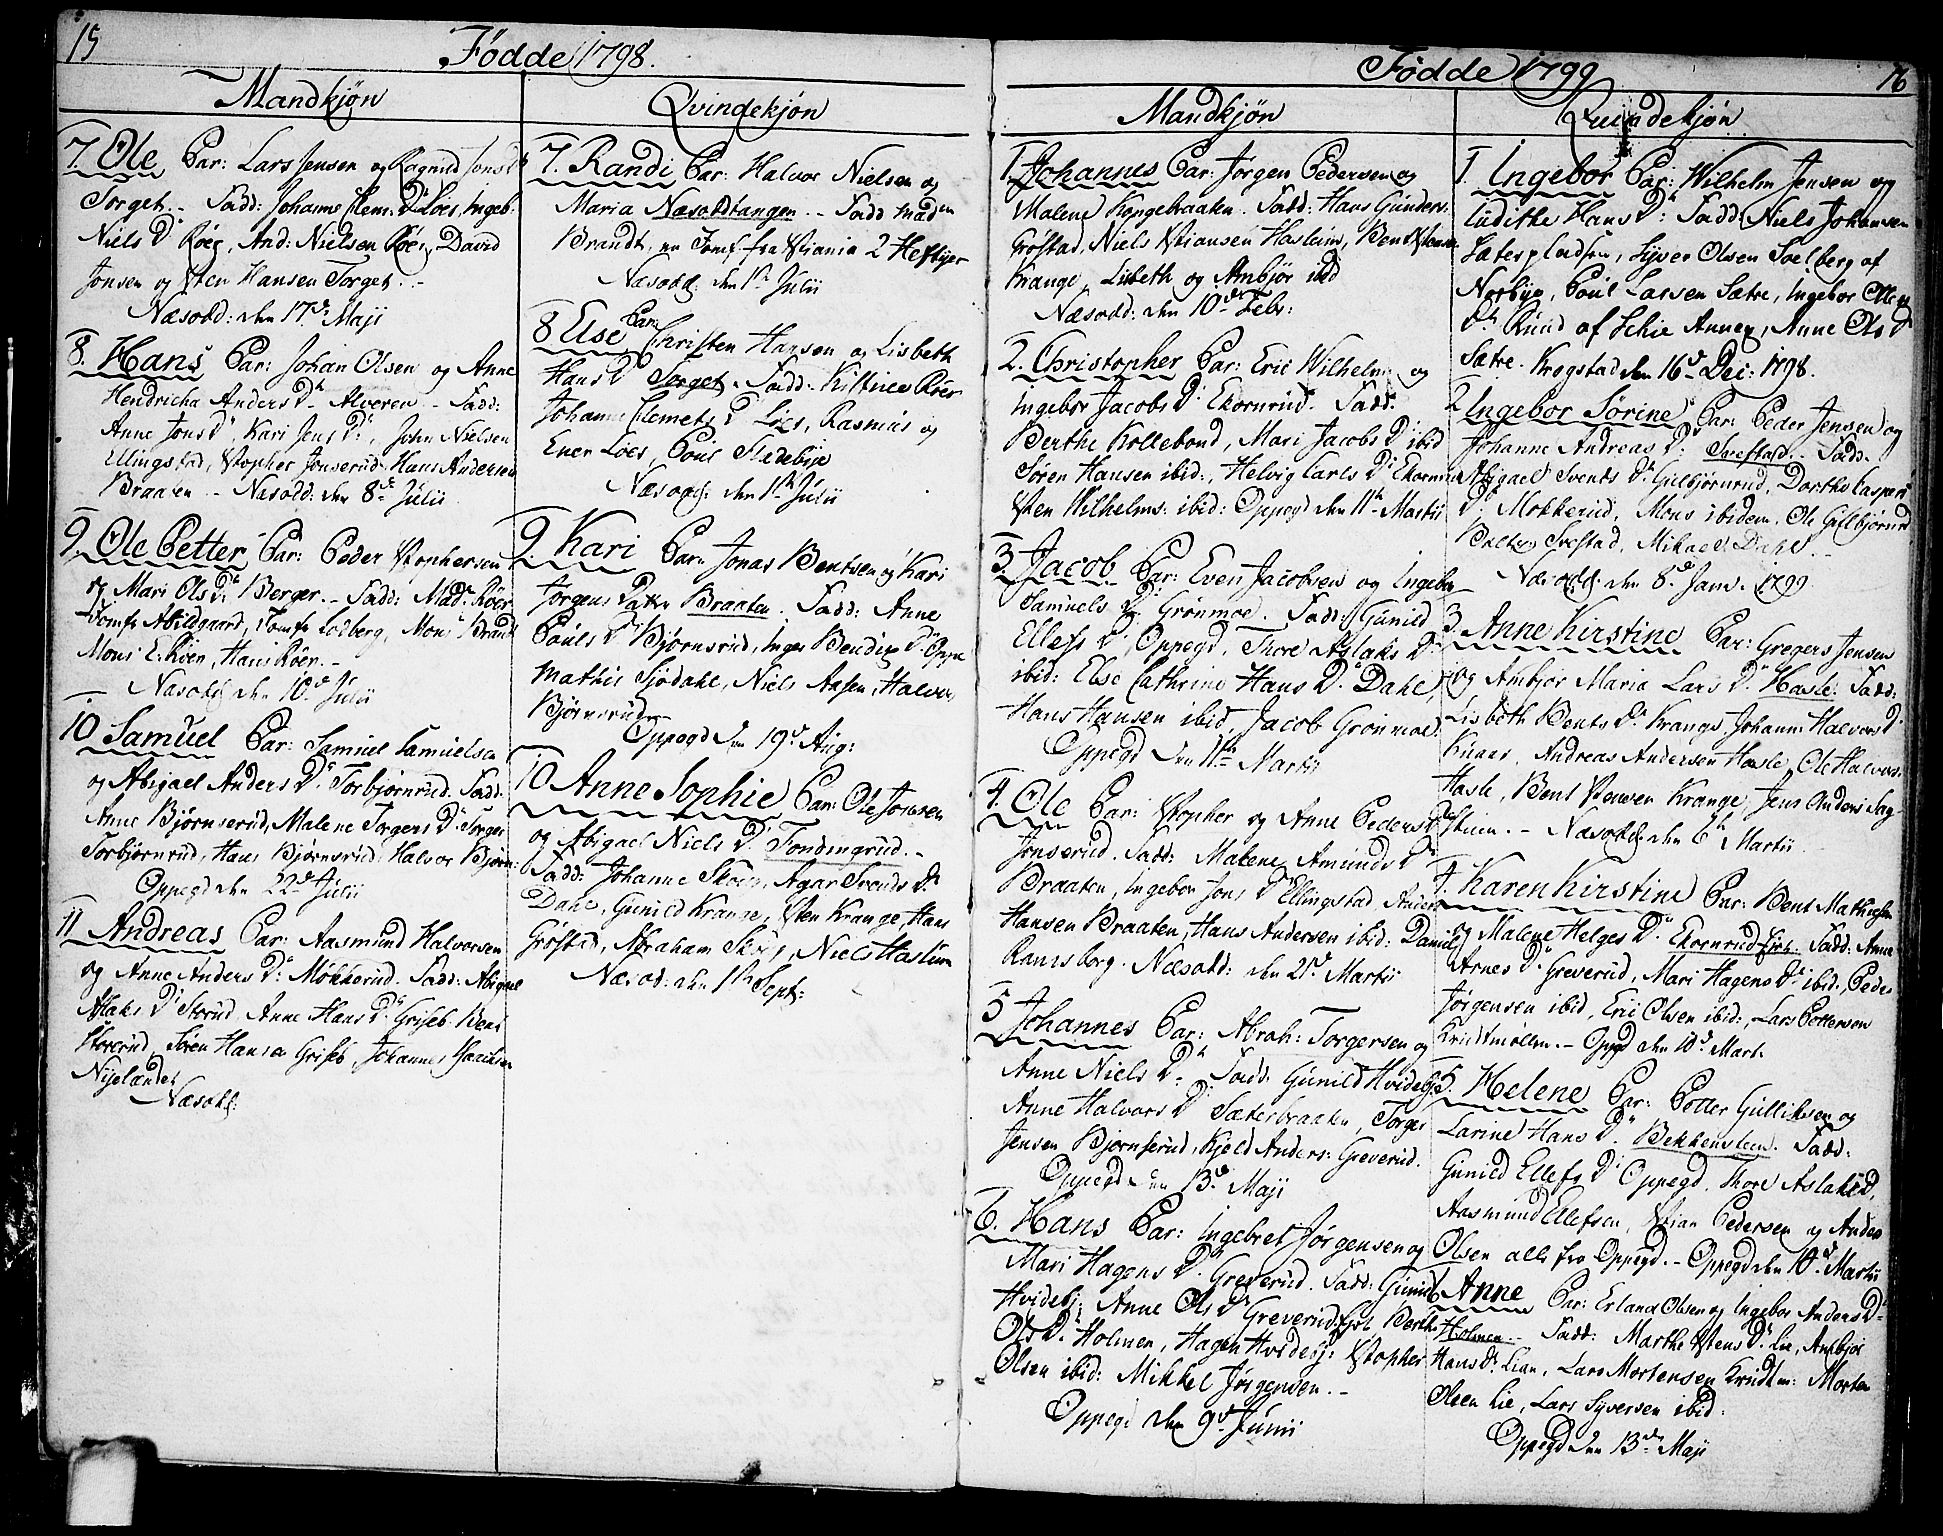 15
Fødde 1798.
Mandkjøn
7. Ole Par: Lars Jensen og Ragnild Jons D
Torget. - Fadd: Johanne Clem: D. Loes, Ingeb:
Niels D. Röer, And: Nielsen Röer, David
Jonsen og Sten Hansen Torget. -
Næsodd: den 17de Maji
8. Hans Par: Johan Olsen og Anne
Hendricha Anders Dr Alveren - Fadd:
Anne Jons Dr, Kari Jens Dr, John Nielsen
Ellingstad, Xstopher Jonserud, Hans Andersen
Braaten - Nasodd: den 8de Julii
9. Ole Petter Par: Peder Xstophersen
og Mari Ols Dr Berger. - Fadd: Mad: Röer
Jomfr Abildgaard, Jomfr Lodberg, Mons Brandt
Mons E. Röer, Hans Röer. -
Nasodd den 10de Julii
10 Samuel Par: Samuel Samuelsen
og Abigael Anders Dr Torbjørnrud. Fadd:
Anne Bjørnserud, Malene Torgers Dr Torger
Torbjørnrud, Hans Bjørnsrud Halvor Bjørn:
Oppegd den 22de Julii
11 Andreas Par: Aasmund Halvorsen
og Anne Anders Dr Møkkerud. Fadd: Abigael
Aslaks Dr Storud Anne Hans Dr Griseb. Bent
Storerud, Sören Hansen Griseb, Johannes Isachsen
Nijelandet
Næsodd:
Qvindekjøn
7. Randi Par: Halvor Nielsen og
Maria Næsoddtangen - Fadd Madm
Brandt, en Jomf. fra Xtiania 2 Heftyer
Næsodd: den 1te Julii
8 Else Par: Christen Hansen og Lisbeth
Hans D Torget - Fadd: Kistine Röer
Johanne Clemets D Loes, Rasmus og
Ener Loes, Poul Fladebye
Næsodd: den 1te Julii
9. Kari Par: Jonas Bentsen og Kari
Jørgens Datter Braaten. Fadd: Anne
Pouls D. Bjørnsrud, Inger Bendix D. Oppe
Mathis Sjödahl, Niels Aasen, Halvor
Bjørnsrud
Oppegd den 19de Aug:
10 Anne Sophie Par: Ole Jonsen
og Abigael Niels D. Tondingrud. -
Fadd: Johanne Skoug, Agar Svends D.
Dahl, Gunild Krange, Sten Krange, Hans
Gröstad, Abraham Skoug, Niels Haslum
Næsod: den 1te Sept:
16
Fødde 1799
Mandkjøn
1. Johannes Par: Jørgen Pedersen og
Malene Kongebraaten. Fadd: Hans Gunders:
Gröstad, Niels Xtiansen Hasleim, Bent Stensen
Krange, Lisbeth og Ambjør ibid
Næsodd: den 10de Febr:
2. Christopher Par: Eric Wilhelms: og
Ingebor Jacobs D. Ekornrud. Fadd:
Berthe Kollebond, Mari Jacobs D. ibid
Sören Hansen ibid:, Helvig Carls D. Ekornrud
Sten Wilhelms. ibid: Oppegd den 11te Martii
3. Jacob Par: Even Jacobsen og Ingebor
Samuels D. Grönmoe. Fadd: Gunild
Ellefs D. Oppegd, Thore Aslaks D.
ibid: Else Cathrine Hans D. Dahl,
Hans Hansen ibid, Jacob Grönmoe.
Oppegd den 11te Martii
4. Ole Par: Xstopher og Anne Peders D.
Jonserud. Fadd: Malene Amunds D.
Braaten, Ingebor Jons D. Ellingstad, Anders
Hansen Braaten, Hans Andersen ibid: Daniel
Ramsborg. Næsodd: den 21de Martii
5 Johannes Par: Abrah: Torgersen og
Anne Niels D. Fadd: Gunild Hvidebye
Anne Halvors D. Sæterbraaten, Torger
Jensen Bjørnserud, Kjeld Anders: Greverud.
Oppegd den 13de Maji
6. Hans Par: Ingebret Jørgensen og
Mari Hagens D. Greverud. Fadd: Gunild
Hvidebj: Anne Ols D. Greverud Eget Berthe
Ols D. Holmen, Hagen Hvidebj: Xstopher
Olsen ibid: Mikkel Jørgensen. -
Oppegd den 9de Junii
Quindekjøn
1. Ingebor Par: Wilhelm Jensen og
Lüditke Hans Dr Fadd: Niels Johansen
Sæterpladsen, Syver Olsen Soelberg af
Norbye, Poul Larsen Sætre, Ingebor Oles
Dr Ruud af Schie Annex, Anne Ols D
Sætre. Krogstad den 16de Dec: 1798.
2 Ingebor Sørine Par: Peder Jensen og
Johanne Andreas Dr Svestad. - Fadd:
Abigael Svends Dr Gilbjørnrud, Dorthe Caspers
D. Møkkerud, Mons ibidem. Ole Gilbjørnrud
Balzer Svestad, Mikael Dahl. -
Næsodd den 8de Janv. 1799
3. Anne Kirstine Par: Gregers Jensen
og Ambjør Maria Lars Dr Hasle. Fadd:
Lisbeth Bents Dr Krange, Johanne Halvors D.
Knaer, Andreas Andersen Hasle, Ole Halvors:
Hasle, Bent Stensen Krange, Jens Anders: Sag
stuen. - Næsodd den 6te Martii
4. Karen Kirstine Par: Bent Mathiesen
og Malene Helges Dr Ekornrud Ejet. Fadd: Anne
Arnes Dr Greverud, Mari Hagens Dr ibid:, Peder
Jørgensen ibid, Eric Olsen ibid:, Lars Pettersen
Kruttmøllen. - Opgd den 10de Mart.
5. Helene Par: Petter Gulliksen og
Larine Hans Dr Bekkensteen. Fadd:
Gunild Ellefs D. Oppegd, Thore Aslaks D.
Aasmund Ellefsen, Xtian Pedersen og Anders
Olsen alle fra Oppegd. - Oppegd den 10de Martii
6 Anne Par: Erland Olsen og Ingebor Anders D.
Holmen. - Fadd: Marthe Stens Dr Lie, Ambjør
Hans Dr Lian, Lars Mortensen Krudtm: Morten
Olsen Lie, Lars Syversen ibid:
Oppegd den 13de Maji